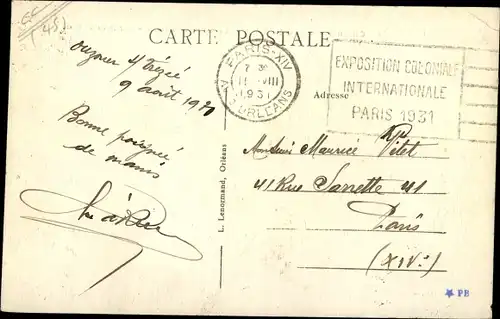 (45)
CARTE POSTALE
Ouzouer s/Trézée
9 août 1931
Bonne poignée
de mains
L. Lenormand, Orléans
PARIS-XIV
7 30
11 VIII
1931
R. D'ORLEANS
EXPOSITION COLONIALE
INTERNATIONALE
PARIS 1931
Adresse
Monsieur Maurice Vilet
41 Rue Sarrette 41
Paris
(XIVe)
PB